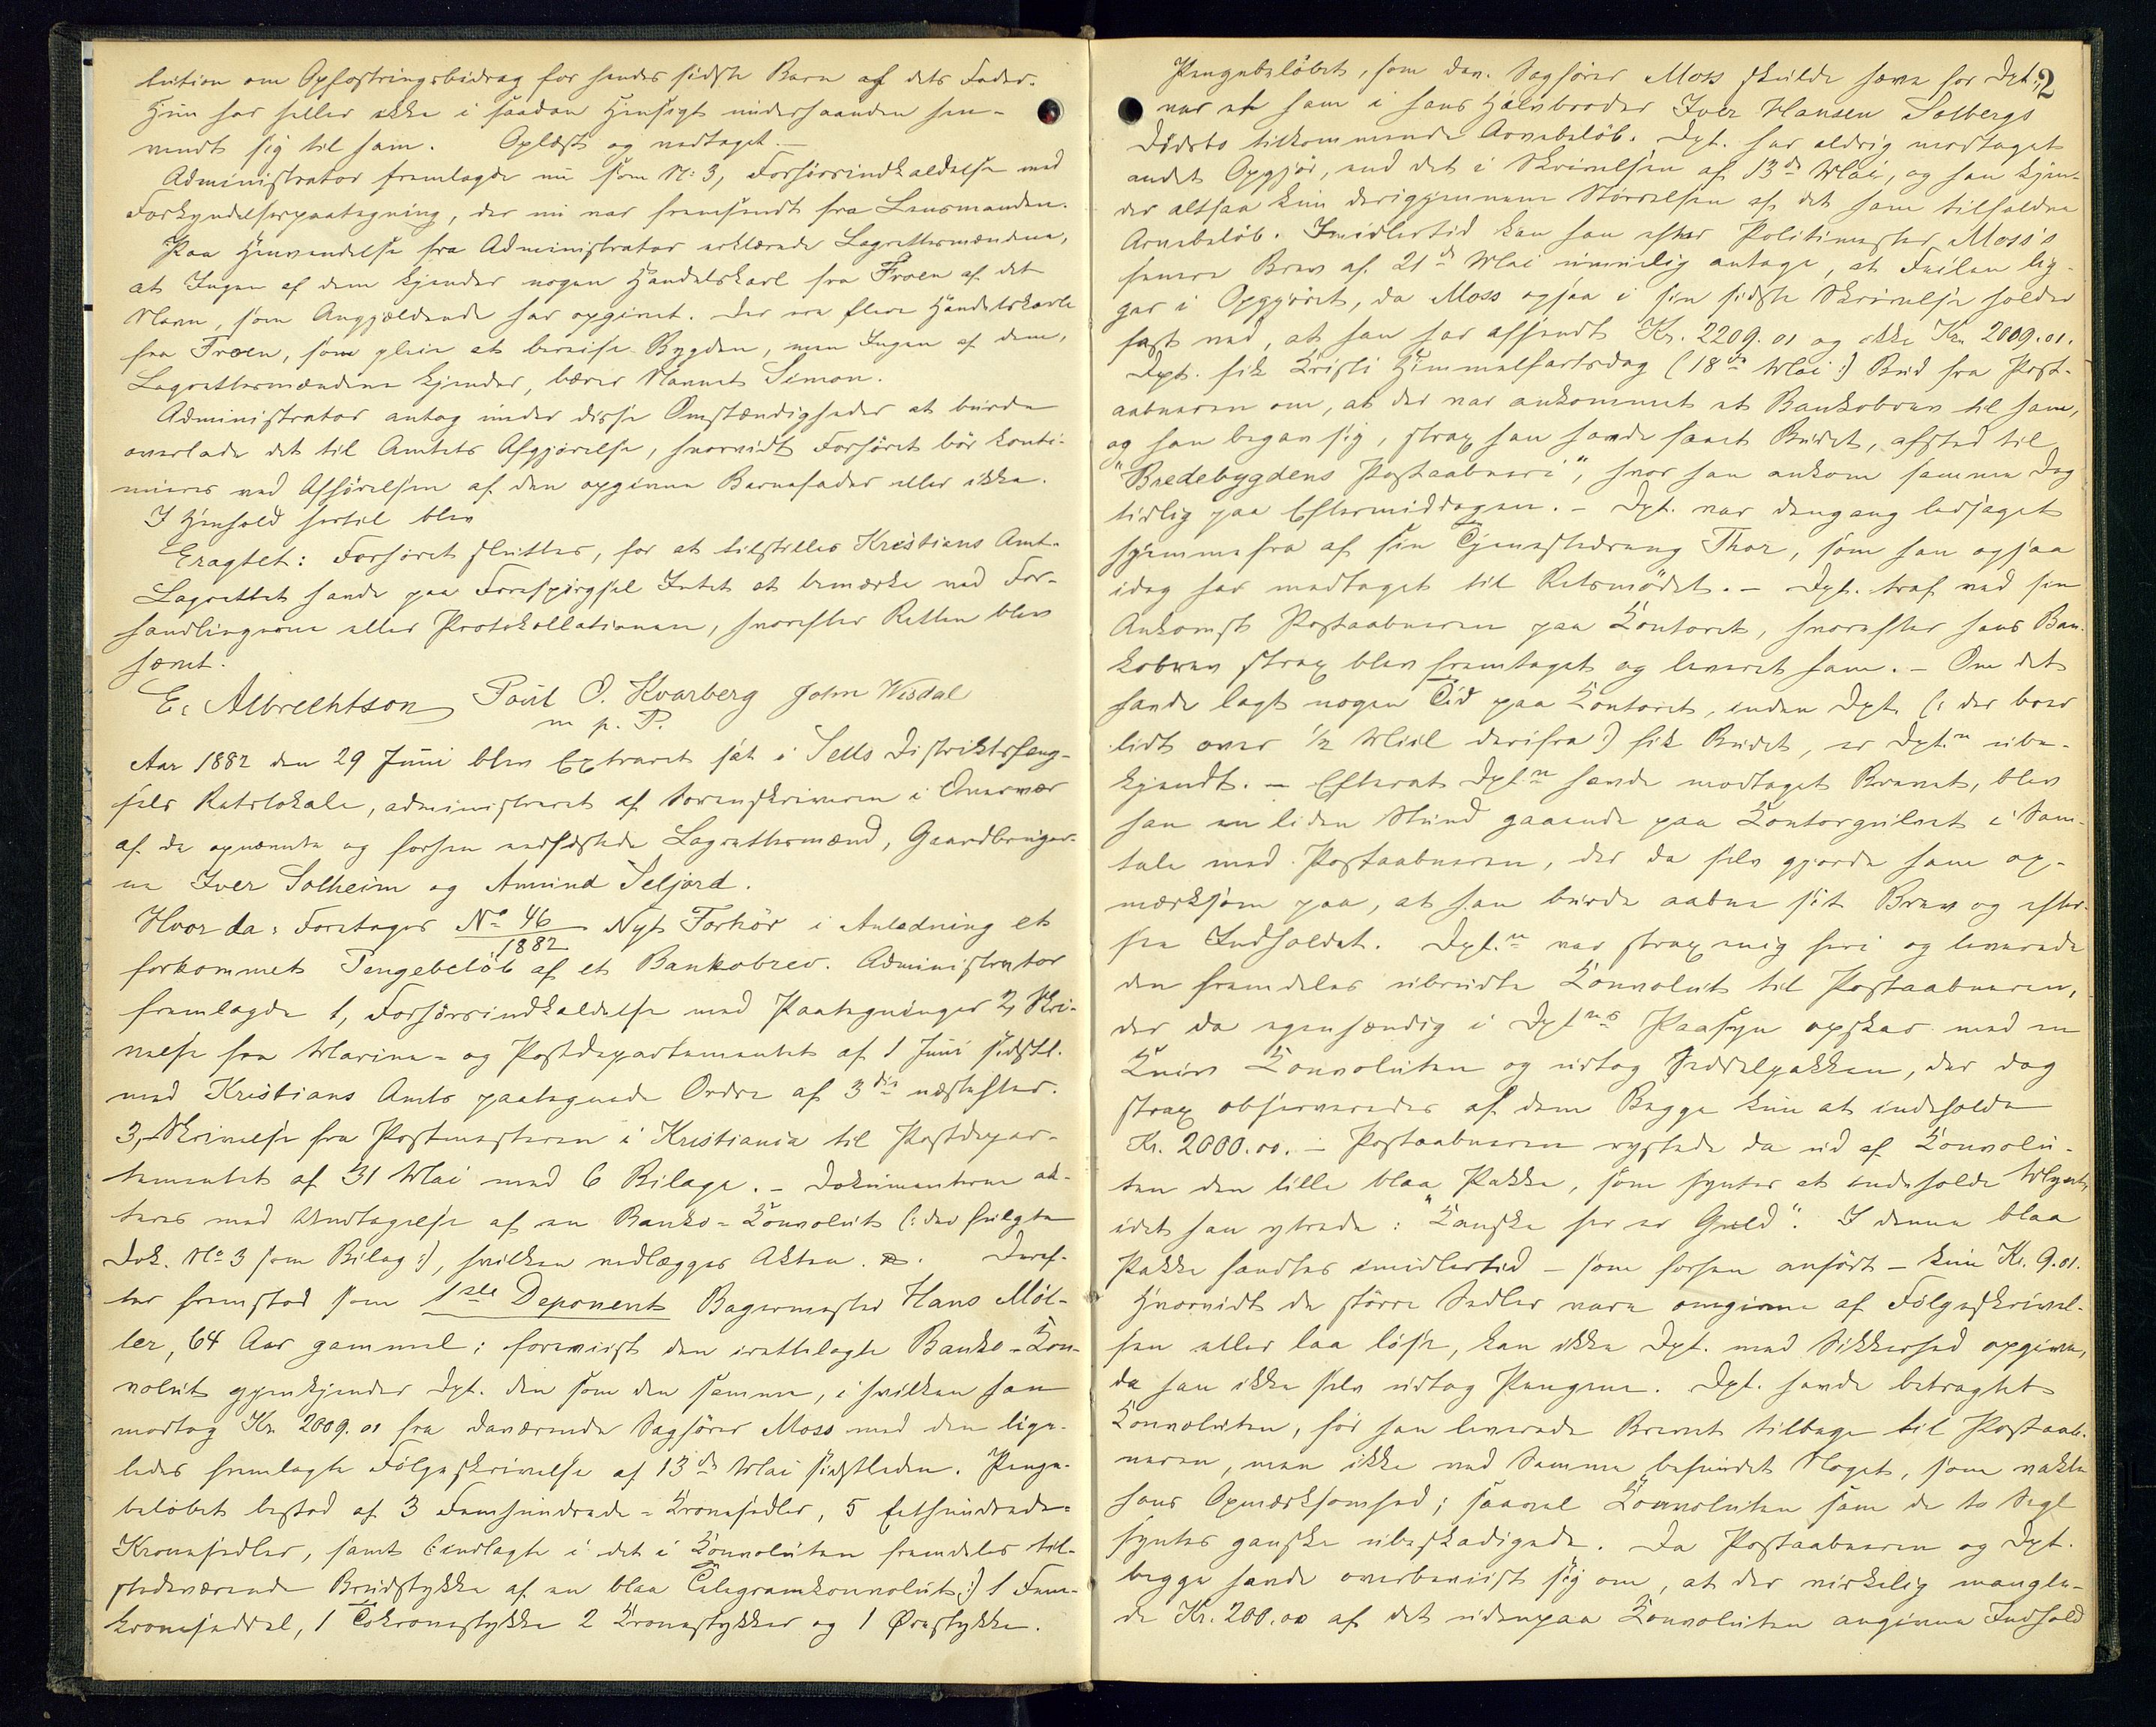 lution om Opfostringsbidrag for hendes sidste Barn af dets Fader.
Hun har heller ikke i saadan Hensigt underhaanden hen-
vendt sig til ham. Oplæst og vedtaget.—
Administrator fremlagde nu som No 3, Forhørsindkaldelse med
Forkyndelsespaategning, der nu var fremsendt fra Lensmanden.
Paa Henvendelse fra Administrator erklærede Lagrettesmændene,
at Ingen af dem kjender nogen Handelskarl fra Froen af det
Navn, som Angjældende har opgivet. Der ere flere Handelskarle
fra Froen, som pleie at bereise Bygden, men Ingen af dem,
Lagrettesmændene kjender, bærer Navnet Simon.
Administrator antog under disse Omstændigheder at burde
overlade det til Amtets Afgjørelse, hvorvidt Forhøret bør konti-
nueres ved Afhørelsen af den opgivne Barnefader eller ikke.
I Henhold hertil blev
Eragtet: Forhøret sluttes, for at tilstilles Kristians Amt.
Lagrettet havde paa Forespørgsel Intet at bemærke ved For-
handlingerne eller Protokollationen, hvorefter Retten blev
hævet.
E. Albrechtson Poul O. Kvarberg John Visdal
m p. P.
Aar 1882 den 29 Juni blev Extraret sat i Sells Distriktsfæng-
sels Retslokale, administreret af Sorenskriveren i Overvær
af de opnævnte og forhen edfæstede Lagrettesmænd, Gaardbruger-
ne Iver Solheim og Amund Seljord.
Hvor da: Foretages No 46/1882 Nyt Forhør i Anledning et
forkommet Pengebeløb af et Bankobrev. Administrator
fremlagde 1, Forhørsindkaldelse med Paategninger 2, Skri-
velse fra Marine- og Postdepartementet af 1 Juni sidstl.
med Kristians Amts paategnede Ordre af 3die næstefter.
3, Skrivelse fra Postmesteren i Kristiania til Postdepar-
tementet af 31 Mai med 6 Bilage. – Dokumenterne ak-
teres med Undtagelse af en Banko-Konvolut (: der fulgte
Dok. No 3 som Bilag :), hvilken vedlægges Akten. Deref-
ter fremstod som 1ste Deponent Bagermester Hans Möl-
ler, 64 Aar gammel; forevist den irettelagte Banko-Kon-
volut gjenkjender Dpt. den som den samme, i hvilken han
modtog Kr. 2009.01 fra daværende Sagfører Moss med den lige-
ledes fremlagte Følgeskrivelse af 13de Mai sidstleden. Penge-
beløbet bestod af 3 Femhundrede-Kronesedler, 5 Ethundrede-
Kronesedler, samt (indlagte i det i Konvoluten fremdeles til-
stedeværende Brudstykke af en blaa Telegramkonvolut:) 1 Fem-
kroneseddel, 1 Tokronestykke 2 Kronestykker og 1 Ørestykke.
2
Pengebeløbet, som dav. Sagfører Moss skulde hæve for Dpt.,
var et ham i hans Halvbroder Iver Hansen Solbergs
Dødsbo tilkommende Arvebeløb. Dpt. har aldrig modtaget
andet Opgjør, end det i Skrivelsen af 13de Mai, og han kjen-
der altsaa kun derigjennem Størrelsen af det ham tilfaldne
Arvebeløb. Imidlertid kan han efter Politimester Moss's
senere Brev af 21de Mai umulig antage, at Feilen lig-
ger i Opgjøret, da Moss ogsaa i sin sidste Skrivelse holder
fast ved, at han har afsendt Kr. 2209.01 og ikke Kr. 2009.01.
Dpt. fik Kristi Himmelfartsdag (18de Mai :) Bud fra Post-
aabneren om, at der var ankommet et Bankobrev til ham,
og han begav sig, strax han havde faaet Budet, afsted til
"Bredebygdens Postaabneri", hvor han ankom samme Dag
tidlig paa Eftermiddagen. – Dpt. var dengang ledsaget
hjemmefra af sin Tjenestedreng Thor, som han ogsaa
idag har medtaget til Retsmødet. – Dpt. traf ved sin
Ankomst Postaabneren paa Kontoret, hvorefter hans Ban-
kobrev strax blev fremtaget og leveret ham. – Om det
havde lagt nogen Tid paa Kontoret, inden Dpt. (: der boer
lidt over 1/2 Miil derifra :) fik Budet, er Dpt.n ube-
kjendt. – Efterat Dpt.n havde modtaget Brevet, blev
han en liden Stund gaaende paa Kontorgulvet i Sam-
tale med Postaabneren, der da selv gjorde ham op-
mærksom paa, at han burde aabne sit Brev og efter-
see Indholdet. Dpt.n var strax enig heri og leverede
den fremdeles ubrudte Konvolut til Postaabneren,
der da egenhændig i Dpt.ns Paasyn opskar med en
Kniv Konvoluten og udtog Seddelpakken, der dog
strax observeredes af dem Begge kun at indeholde
Kr. 2000.00. – Postaabneren rystede da ud af Konvolu-
ten den lille blaa Pakke, som syntes at indeholde Mynt,
idet han ytrede: "Kanske her er Guld". I denne blaa
Pakke fandtes imidlertid – som forhen anført – kun Kr. 9.01.
Hvorvidt de større Sedler vare omgivne af Følgeskrivel-
sen eller laa løse, kan ikke Dpt. med Sikkerhed opgive,
da han ikke selv udtog Pengene. Dpt. havde betragtet
Konvoluten, før han leverede Brevet tilbage til Postaab-
neren, men ikke ved Samme befundet Noget, som vakte
hans Opmærksomhed; saavel Konvoluten som de to Segl
syntes ganske ubeskadigede. Da Postaabneren og Dpt.
begge havde overbeviist sig om, at der virkelig mangle-
de Kr. 200.00 af det udenpaa Konvoluten angivne Indhold